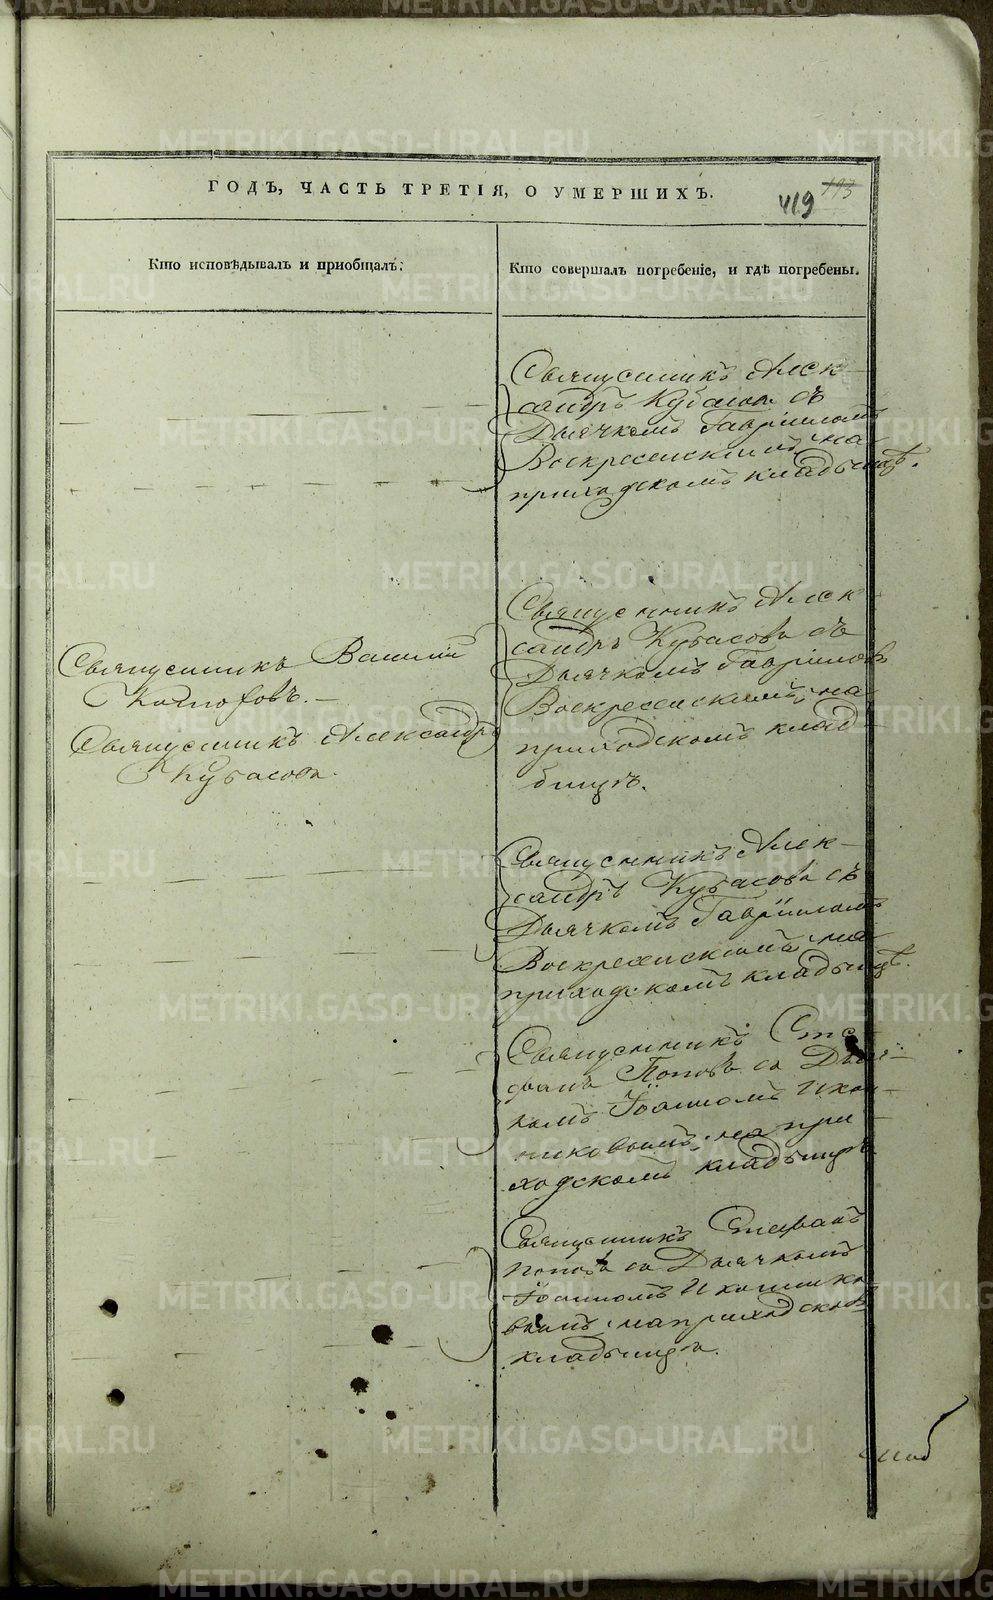 ГОДЪ, ЧАСТЬ ТРЕТІЯ, О УМЕРШИХЪ.
193
419
Кто исповѣдывалъ и пріобщалъ.
Кто совершалъ погребеніе, и гдѣ погребены.
Священникъ Алек-
сандръ Кубасовъ съ
Дьячкомъ Гавріиломъ
Воскресенскимъ, на
приходскомъ кладбищѣ.
Священникъ Василій
Священникъ Александръ
Кубасовъ.
Священникъ Алек-
сандръ Кубасовъ съ
Дьячкомъ Гавріиломъ
Воскресенскимъ, на
приходскомъ клад-
бищѣ.
Священникъ Алек-
сандръ Кубасовъ съ
Дьячкомъ Гавріиломъ
Воскресенскимъ, на
приходскомъ кладбищѣ.
Священникъ Сте-
фанъ Поповъ съ Дьяч-
комъ Іоанномъ Икон-
никовымъ, на при
ходскомъ кладбищѣ
Священникъ Стефанъ
Поповъ съ Дьячкомъ
Іоанномъ Иконнико
вымъ, на приходскомъ
кладбищѣ.
METRIKI.GASO-URAL.RU